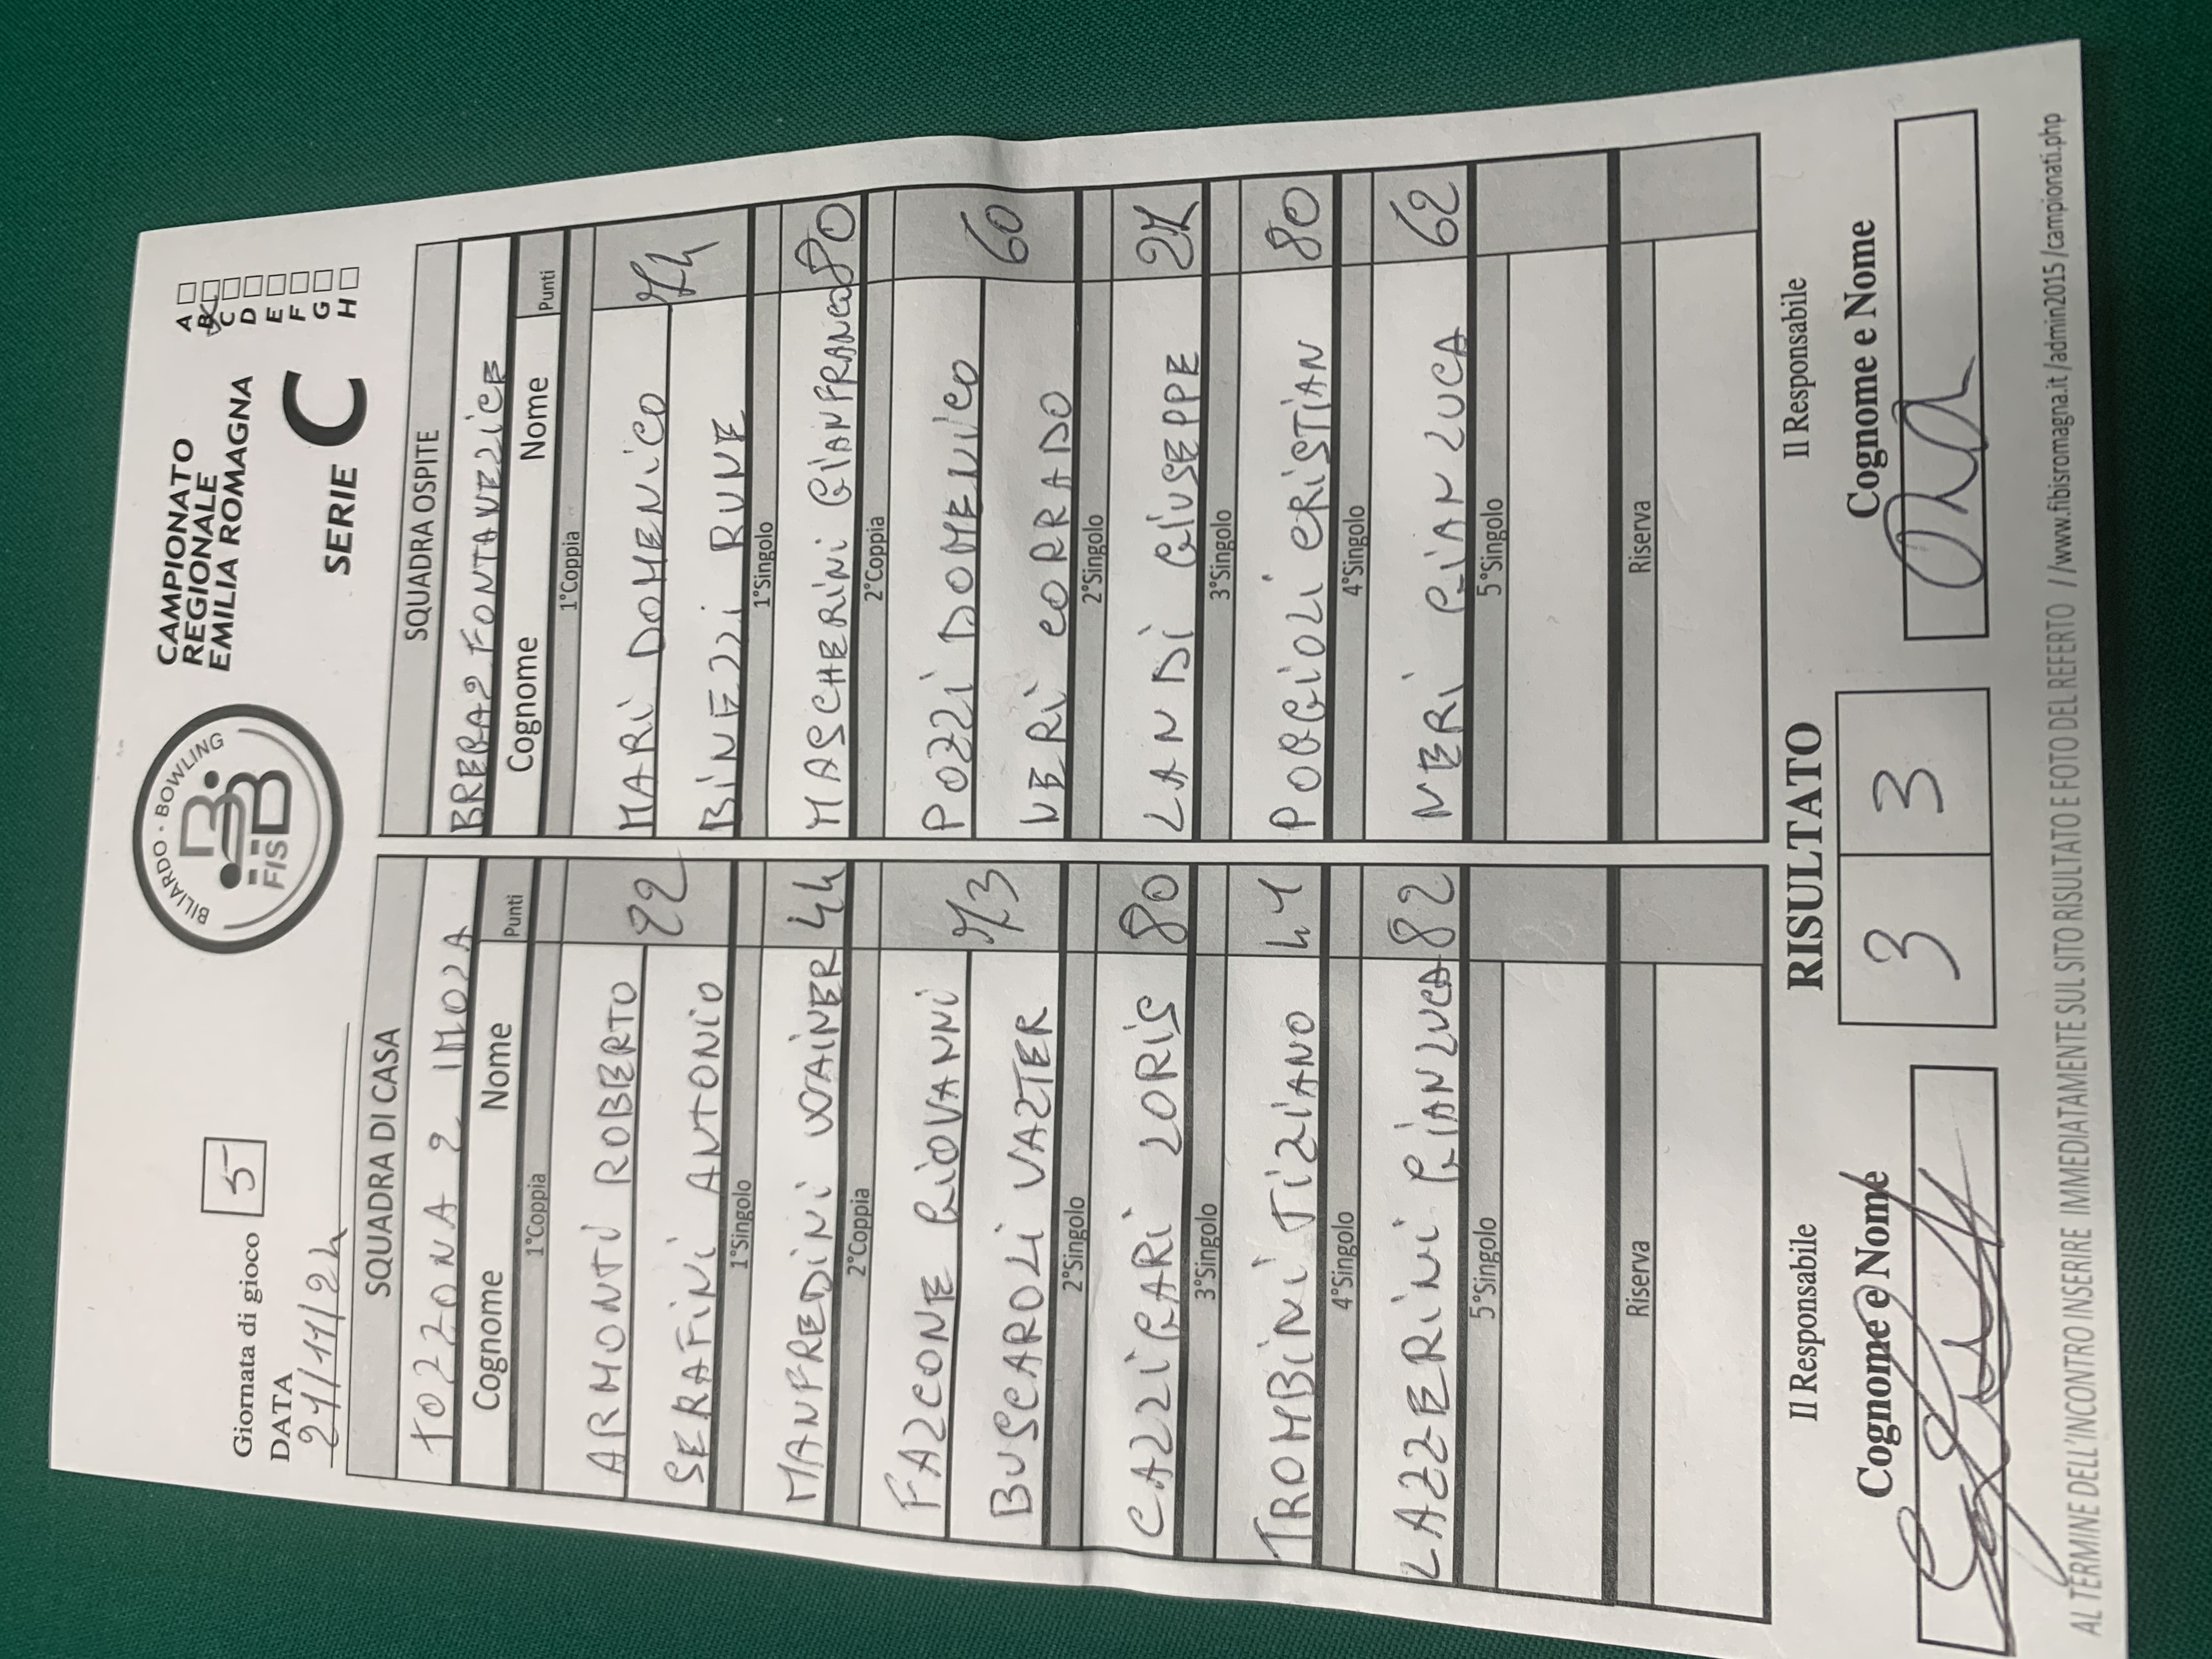 Giornata di gioco 5
DATA
21/11/24
BILIARDO · BOWLING
FISBB
CAMPIONATO
REGIONALE
EMILIA ROMAGNA
SERIE C
A
B
C
D
E
F
G
H
SQUADRA DI CASA SQUADRA OSPITE
TOZZONA 2 IMOLA BREBA2 FONTANELICE
Cognome Nome Punti Cognome Nome Punti
1°Coppia 1°Coppia
ARMONTI ROBERTO 22 MARI DOMENICO 74
SERAFINI ANTONIO BINELLI RUNE
1°Singolo 1°Singolo
MANFREDINI WAINER 44 MASCHERINI GIANFRANCO 80
2°Coppia 2°Coppia
FALCONE GIOVANNI 73 POZZI DOMENICO 60
BUSCAROLI VALTER NERI CORRADO
2°Singolo 2°Singolo
CALLIGARI LORIS 80 LANDI GIUSEPPE
3°Singolo 3°Singolo
TROMBINI TIZIANO 41 POGGIOLI CRISTIAN 80
4°Singolo 4°Singolo
LAZZERINI GIANLUCA 82 NERI GIANLUCA 62
5°Singolo 5°Singolo
Riserva Riserva
Il Responsabile RISULTATO Il Responsabile
Cognome e Nome 3 3 Cognome e Nome
AL TERMINE DELL'INCONTRO INSERIRE IMMEDIATAMENTE SUL SITO RISULTATO E FOTO DEL REFERTO //www.fibisromagna.it/admin2015/campionati.php